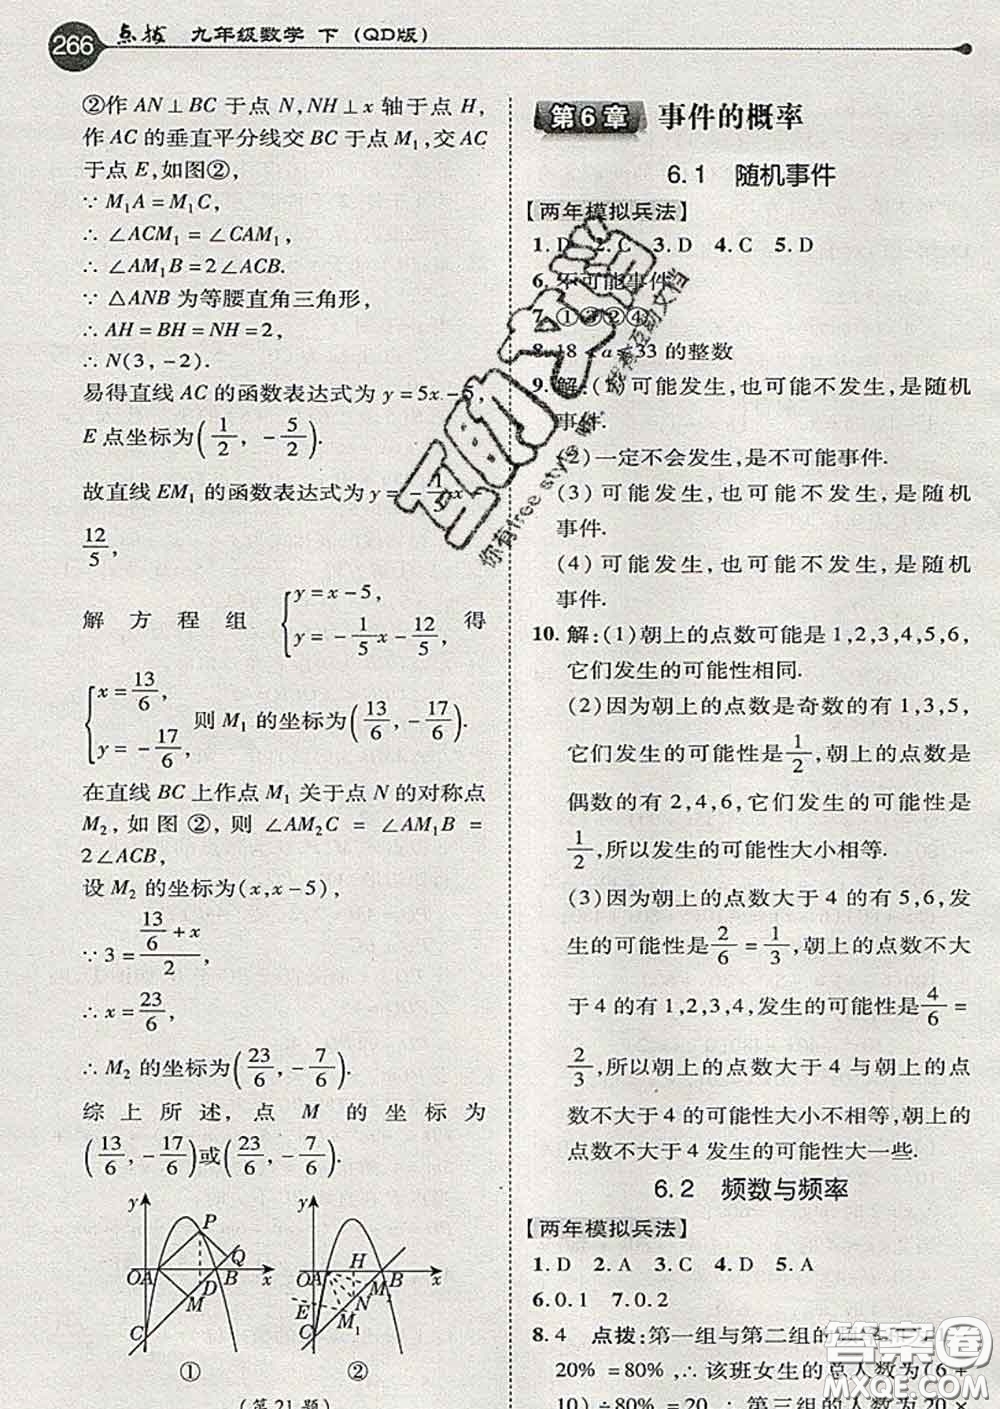 266 点拨 九年级数学 下（QD版）
②作 AN⊥BC 于点 N,NH⊥x 轴于点 H,
作 AC 的垂直平分线交 BC 于点 M₁,交 AC
于点 E,如图②,
∵ M₁A = M₁C,
∴ ∠ACM₁ = ∠CAM₁,
∴ ∠AM₁B = 2∠ACB.
∵ △ANB 为等腰直角三角形,
∴ AH = BH = NH = 2,
∴ N(3, -2).
易得直线 AC 的函数表达式为 y = 5x - 5,
E 点坐标为(1/2, -5/2).
故直线 EM₁ 的函数表达式为 y = -1/5 x
12/5,
解方程组 { y = x - 5, y = -1/5 x - 12/5, 得
{ x = 13/6, y = -17/6, 则 M₁ 的坐标为(13/6, -17/6).
在直线 BC 上作点 M₁ 关于点 N 的对称点
M₂,如图②,则 ∠AM₂C = ∠AM₁B =
2∠ACB,
设 M₂ 的坐标为(x,x-5),
∵ 3 = (13/6 + x)/2,
∴ x = 23/6,
∴ M₂ 的坐标为(23/6, -7/6).
综上所述,点 M 的坐标为
(13/6, -17/6)或(23/6, -7/6).
y P Q O A B x D M C
①
y H O A B x M₂ N E M₁ C
②
(第 21 题)
第6章 事件的概率
6.1 随机事件
【两年模拟兵法】
1. D 2. C 3. D 4. C 5. D
6. 不可能事件
7. ①③②④
8. 18 < a < 33 的整数
9. 解:(1)可能发生,也可能不发生,是随机
事件.
(2)一定不会发生,是不可能事件.
(3)可能发生,也可能不发生,是随机
事件.
(4)可能发生,也可能不发生,是随机
事件.
10. 解:(1)朝上的点数可能是 1,2,3,4,5,6,
它们发生的可能性相同.
(2)因为朝上的点数是奇数的有 1,3,5,
它们发生的可能性是 1/2,朝上的点数是
偶数的有 2,4,6,它们发生的可能性是
1/2,所以发生的可能性大小相等.
(3)因为朝上的点数大于 4 的有 5,6,发
生的可能性是 2/6 = 1/3,朝上的点数不大
于 4 的有 1,2,3,4,发生的可能性是 4/6 =
2/3,所以朝上的点数大于 4 与朝上的点
数不大于 4 的可能性大小不相等,朝上的
点数不大于 4 发生的可能性大一些.
6.2 频数与频率
【两年模拟兵法】
1. D 2. A 3. C 4. D 5. A
6. 0.1 7. 0.2
8. 4 点拨:第一组与第二组的
20% = 80%,∴ 该班女生的总人数为(6 +
10) ÷ 80% = 20,∴ 第三组的人数为 20 ×
互助文档
你有free style 嘛
我有互助文档
答案圈
MXQE.COM